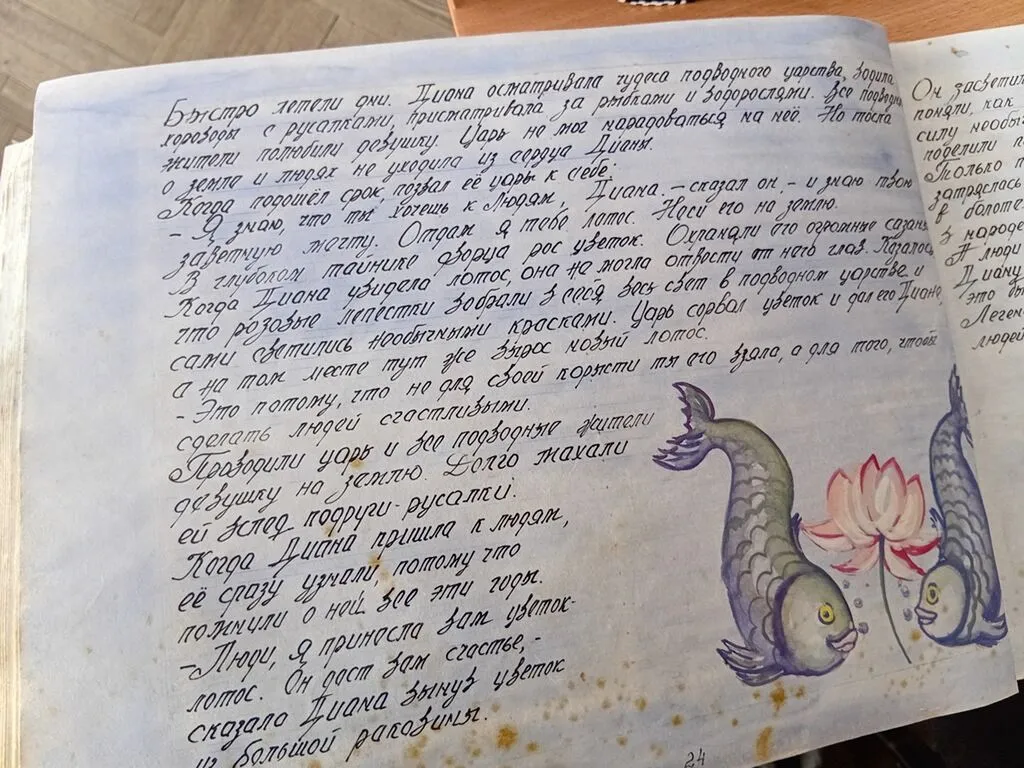 Быстро летели дни. Диана осматривала чудеса подводного царства, водила
хороводы с русалками, присматривала за рыбками и водорослями. Все подводные
жители полюбили девушку. Царь не мог нарадоваться на неё. Но тоска
о земле и людях не уходила из сердца Дианы.
Когда подошёл срок, позвал её царь к себе:
- Я знаю, что ты хочешь к людям, Диана. - сказал он, - и знаю твою
заветную мечту. Отдам я тебе лотос. Неси его на землю.
В глубоком тайнике дворца рос цветок. Охраняли его огромные сазаны.
Когда Диана увидела лотос, она не могла отвести от него глаз. Казалось,
что розовые лепестки вобрали в себя весь свет в подводном царстве и
сами светились необычными красками. Царь сорвал цветок и дал его Диане,
а на том месте тут же вырос новый лотос.
- Это потому, что не для своей корысти ты его взяла, а для того, чтобы
сделать людей счастливыми.
Проводили царь и все подводные жители
девушку на землю. Долго махали
ей вслед подруги-русалки.
Когда Диана пришла к людям,
её сразу узнали, потому что
помнили о ней все эти годы.
- Люди, я принесла вам цветок-
лотос. Он даст вам счастье, -
сказала Диана вынув цветок
из большой раковины.
24
Он засветил
поняли, как
силу необы
поделили п
Только
затряслась
в болоте
в народе
А люди
Диану
это бы
Леген
людей